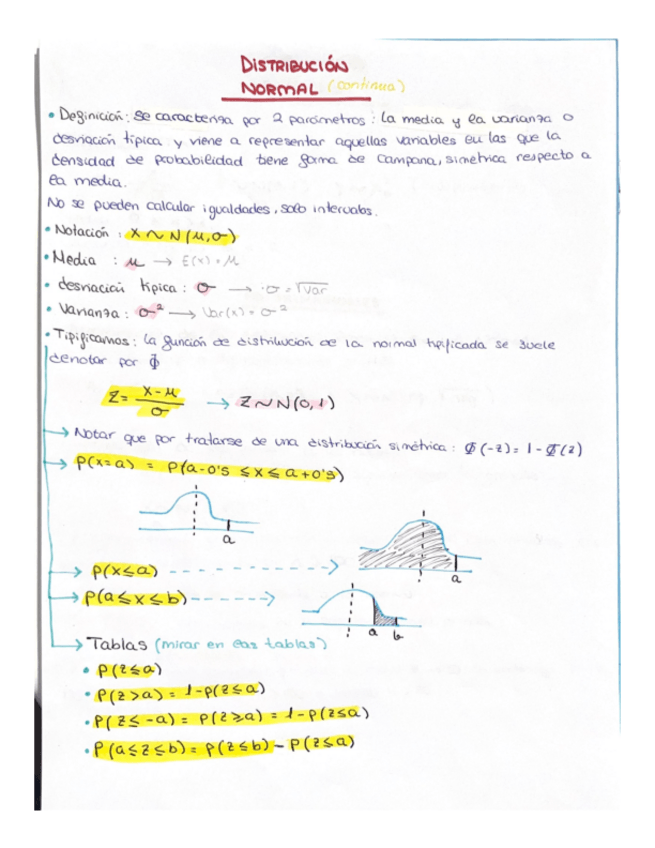 DISTRIBUCIÓN
NORMAL (continua)
• Definición: se caracteriza por 2 parámetros: la media y la varianza o
desviación típica y viene a representar aquellas variables en las que la
densidad de probabilidad tiene forma de campana, simétrica respecto a
la media.
No se pueden calcular igualdades, solo intervalos.
• Notación: X ~ N(μ,σ)
• Media : μ → E(x) = μ
• desviación típica : σ → σ = √Var
• Varianza : σ² → Var(x) = σ²
• Tipificamos: la función de distribución de la normal tipificada se suele
denotar por Φ
Z = (x-μ)/σ → Z ~ N(0,1)
→ Notar que por tratarse de una distribución simétrica: Φ(-z) = 1 - Φ(z)
→ P(x=a) = P(a-0's ≤ x ≤ a+0's)
a
a
→ P(x≤a) - - - - - - - - →
→ P(a≤x≤b) - - - - - →
a b
→ Tablas (mirar en las tablas)
• P(z≤a)
• P(z>a) = 1-P(z≤a)
• P(z≤-a) = P(z≥a) = 1-P(z≤a)
• P(a≤z≤b) = P(z≤b) - P(z≤a)